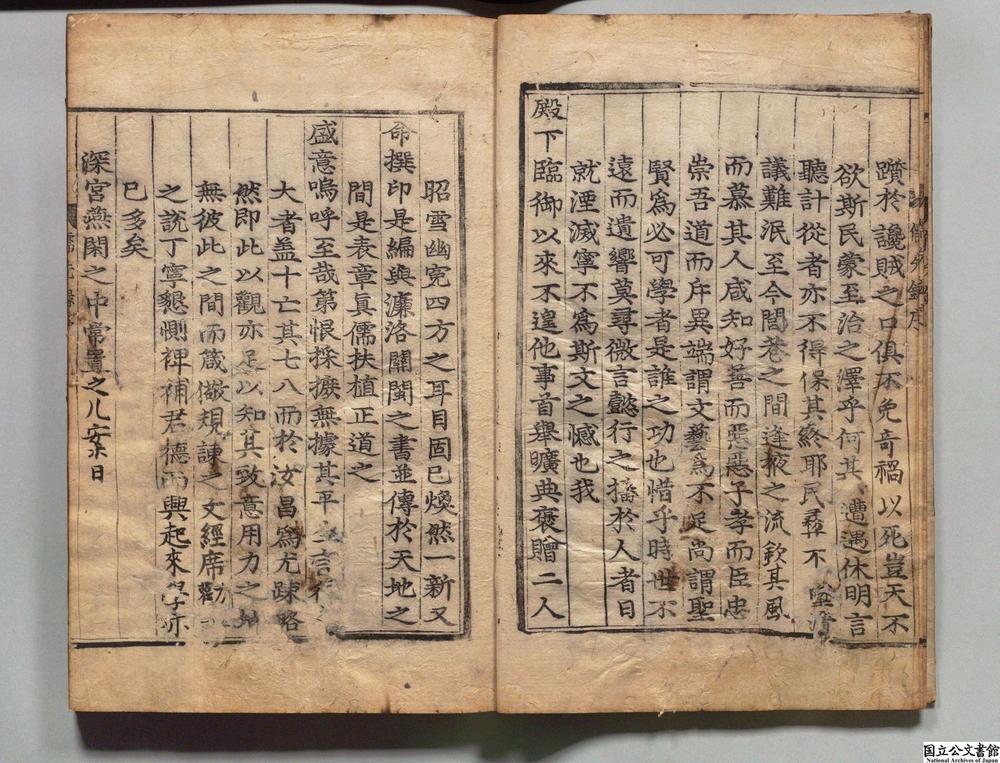 躓於讒賊之口俱不免奇禍以死豈天不
欲斯民蒙至治之澤乎何其遭遇休明言
聽計從者亦不得保其終耶民彝不墜淸
議難泯至今閭巷之間逢掖之流欽其風
而慕其人咸知好善而惡惡子孝而臣忠
崇吾道而斥異端謂文藝爲不足尙謂聖
賢爲必可學者是誰之功也惜乎時世不
遠而遺響莫尋微言懿行之播於人者日
就湮滅寧不爲斯文之憾也我
殿下臨御以來不遑他事首舉曠典褒贈二人
昭雪幽寃四方之耳目固已煥然一新又
命撰印是編與濂洛關閩之書並傳於天地之
間是表章眞儒扶植正道之
盛意嗚呼至哉第恨採摭無據其平言
大者盖十亡其七八而於汝昌爲尤踈略
然即此以觀亦足以知其致意用力之地
無彼此之間而箴儆規諫之文經席勸
之說丁寧懇惻裨補君德而興起來學亦
已多矣
深宮燕閑之中常置之几案日
國立公文書館
National Archives of Japan